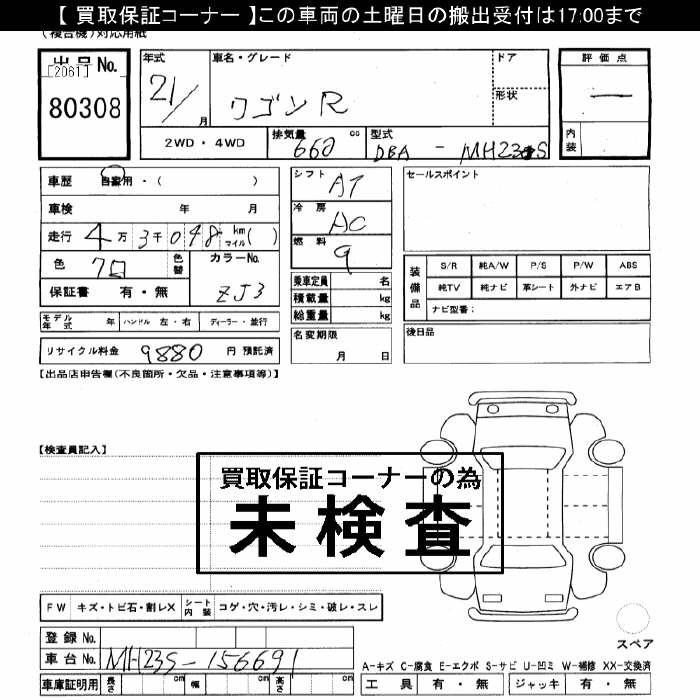 【 買取保証コーナー 】この車両の土曜日の搬出受付は17:00まで
(複合機)対応用紙
出品No.
[2061]
80308
年式
21/
月
車名・グレード
ワゴンR
ドア
形状
評価点
―
内装
2WD・4WD
排気量
660
cc
型式
DBA - MH23S
車歴
自家用・(　　　)
車検
年
月
走行
4万3千048
km
マイル
(　)
色
クロ
色替
カラーNo.
ZJ3
保証書
有・無
シフト
AT
冷房
AC
燃料
乗車定員
名
積載量
kg
総重量
kg
名変期限
月
日
セールスポイント
装備品
S/R
純A/W
P/S
P/W
ABS
純TV
純ナビ
革シート
外ナビ
エアB
ナビ型番:
後日品
モデル年式
年
ハンドル 左・右
ディーラー・並行
リサイクル料金
9880
円 預託済
【出品店申告欄(不良箇所・欠品・注意事項等)】
【検査員記入】
買取保証コーナーの為
未検査
FW
キズ・トビ石・割レX
シート内装
コゲ・穴・汚レ・シミ・破レ・スレ
登録No.
車台No.
MH23S-156691
車庫証明用
長さ
cm
幅
cm
高さ
cm
スペア
A-キズ C-腐食 E-エクボ S-サビ U-凹ミ W-補修 XX-交換済
工具
有・無
ジャッキ
有・無